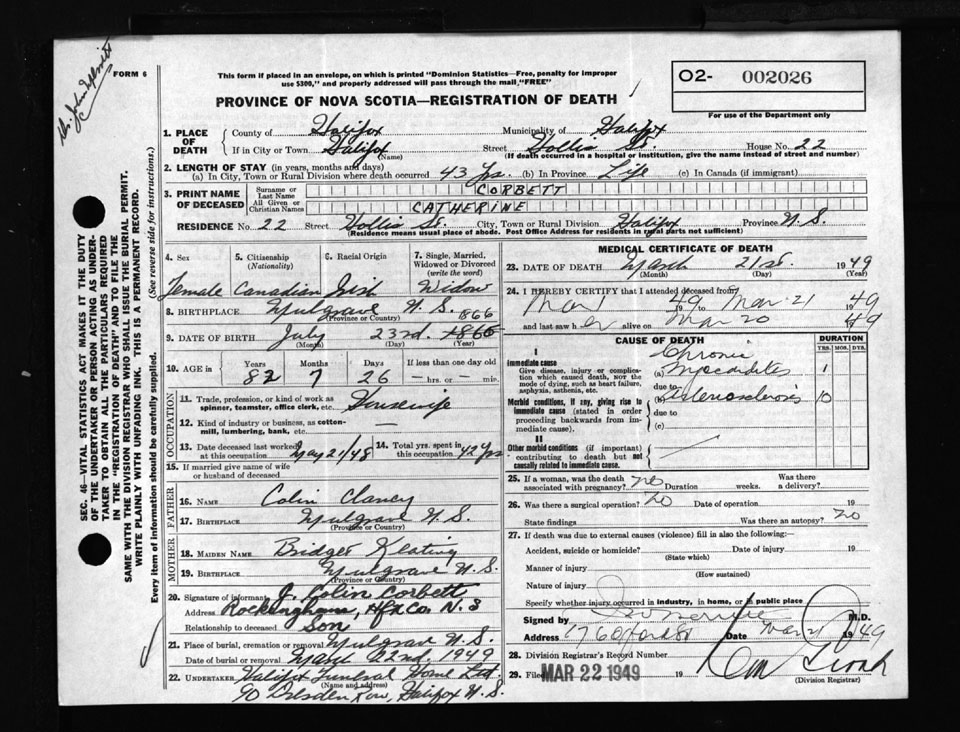 FORM 6
This form if placed in an envelope, on which is printed "Dominion Statistics—Free, penalty for improper
use $300," and properly addressed will pass through the mail "FREE"
O2- 002026
For use of the Department only
PROVINCE OF NOVA SCOTIA—REGISTRATION OF DEATH
SEC. 46—VITAL STATISTICS ACT MAKES IT THE DUTY
OF THE UNDERTAKER OR PERSON ACTING AS UNDER-
TAKER TO OBTAIN ALL THE PARTICULARS REQUIRED
IN THE "REGISTRATION OF DEATH" AND TO FILE THE
SAME WITH THE DIVISION REGISTRAR WHO SHALL ISSUE THE BURIAL PERMIT.
WRITE PLAINLY WITH UNFADING INK. THIS IS A PERMANENT RECORD.
Every item of information should be carefully supplied. (See reverse side for instructions.)
1. PLACE OF DEATH
County of Halifax Municipality of Halifax
If in City or Town Halifax Street Hollis St. House No. 22
(Name) (If death occurred in a hospital or institution, give the name instead of street and number)
2. LENGTH OF STAY (in years, months and days)
(a) In City, Town or Rural Division where death occurred 43 Yrs. (b) In Province Life (c) In Canada (if immigrant)
3. PRINT NAME OF DECEASED
Surname or Last Name CORBETT
All Given or Christian Names CATHERINE
RESIDENCE No. 22 Street Hollis St. City, Town or Rural Division Halifax Province N.S.
(Residence means usual place of abode. Post Office Address for residents in rural parts not sufficient)
4. Sex 5. Citizenship (Nationality) 6. Racial Origin 7. Single, Married, Widowed or Divorced (write the word)
Female Canadian Irish Widow
8. BIRTHPLACE Mulgrave N.S.
(Province or Country)
1866
9. DATE OF BIRTH July 23rd. 1865
(Month) (Day) (Year)
10. AGE in Years Months Days If less than one day old
82 7 26 hrs. or min.
OCCUPATION
11. Trade, profession, or kind of work as spinner, teamster, office clerk, etc. Housewife
12. Kind of industry or business, as cotton-mill, lumbering, bank, etc. —
13. Date deceased last worked at this occupation May 21/48 14. Total yrs. spent in this occupation 42 Yrs
15. If married give name of wife or husband of deceased
FATHER
16. NAME Colin Clancy
17. BIRTHPLACE Mulgrave N.S.
(Province or Country)
MOTHER
18. MAIDEN NAME Bridget Keating
19. BIRTHPLACE Mulgrave N.S.
(Province or Country)
20. Signature of informant J. Colin Corbett
Address Rockingham, Hfx Co. N.S
Relationship to deceased Son
21. Place of burial, cremation or removal Mulgrave N.S.
Date of burial or removal March 22nd. 1949
22. UNDERTAKER Halifax Funeral Home Ltd.
(Name and address)
90 Dresden Row, Halifax N.S.
MEDICAL CERTIFICATE OF DEATH
23. DATE OF DEATH March 21st. 1949
(Month) (Day) (Year)
24. I HEREBY CERTIFY that I attended deceased from
Mar 1 1949 to Mar 21 1949
and last saw her alive on Mar 20 1949
CAUSE OF DEATH DURATION
YRS. MOS. DYS.
I
Immediate cause
Give disease, injury or complication which caused death, not the mode of dying, such as heart failure, asphyxia, asthenia, etc.
Chronic
(a) Myocarditis 1
due to
Morbid conditions, if any, giving rise to immediate cause (stated in order proceeding backwards from immediate cause).
(b) Arteriosclerosis 10
due to
(c)
II
Other morbid conditions (if important) contributing to death but not causally related to immediate cause.
25. If a woman, was the death associated with pregnancy? no Duration weeks. Was there a delivery?
26. Was there a surgical operation? no Date of operation 19
State findings Was there an autopsy? no
27. If death was due to external causes (violence) fill in also the following:
Accident, suicide or homicide? Date of injury 19
(State which)
Manner of injury
(How sustained)
Nature of injury
Specify whether injury occurred in industry, in home, or in public place
Signed by M.D.
Address Date Mar 21 1949
28. Division Registrar's Record Number
29. Filed MAR 22 1949 19
(Division Registrar)